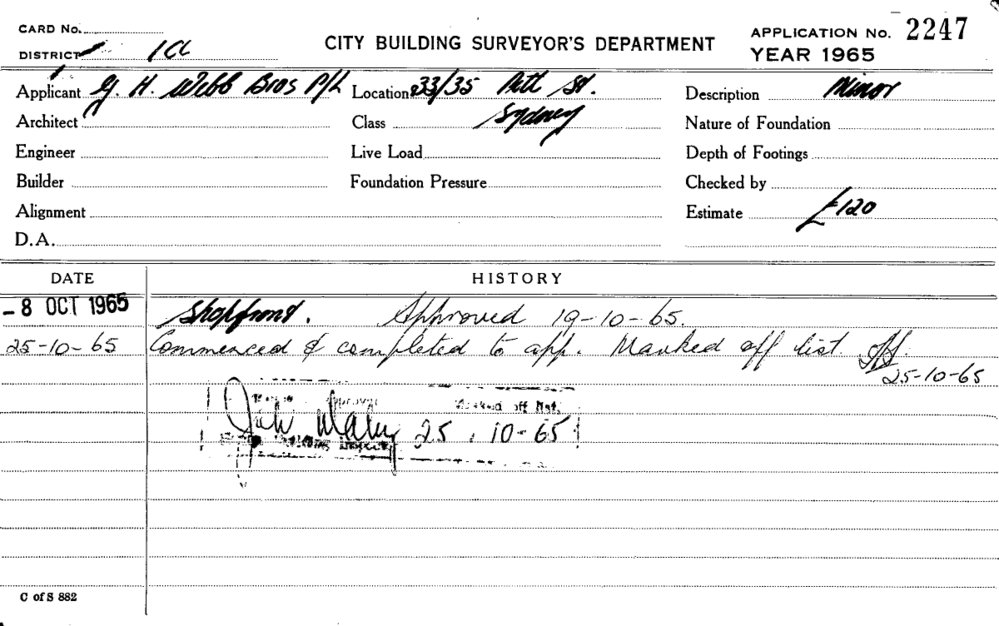 CARD No.
DISTRICT
CITY BUILDING SURVEYOR'S DEPARTMENT
APPLICATION No. 2247
YEAR 1965
Applicant G. H. Webb Bros P/L
Location 233/35 Pitt St.
Description Minor
Architect
Class Sydney
Nature of Foundation
Engineer
Live Load
Depth of Footings
Builder
Foundation Pressure
Checked by
Alignment
Estimate £120
D.A.
DATE HISTORY
-8 OCT 1965 Shopfront. Approved 19-10-65.
25-10-65 Commenced & completed to app. Marked off list.
25-10-65
Approval Marked off list.
25.10-65
C of S 882